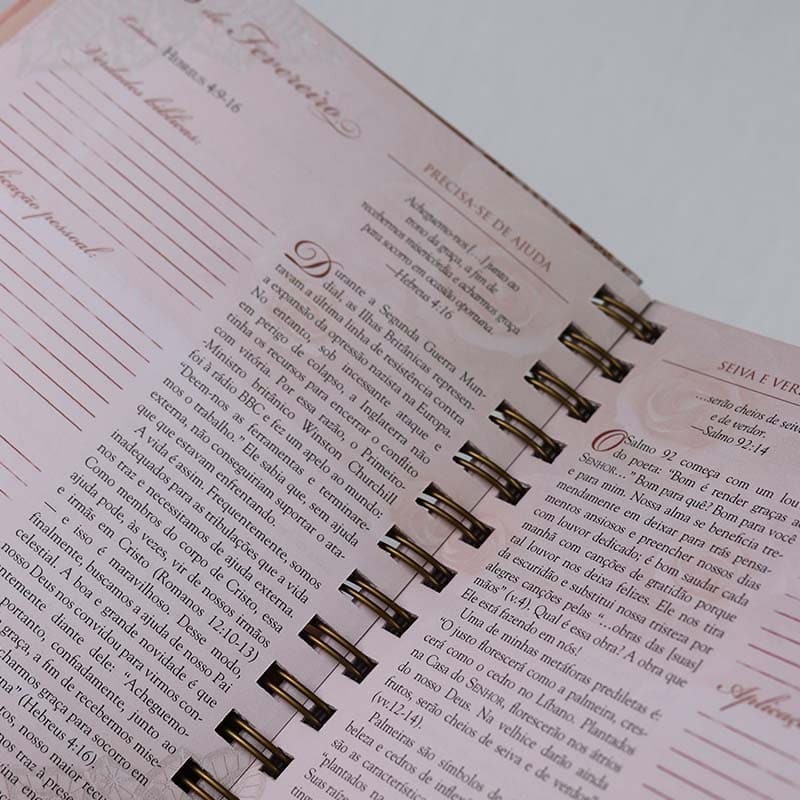 de Fevereiro
HEBREUS 4:9-16
Verdades bíblicas:
licação pessoal:
PRECISA-SE DE AJUDA
Acheguemo-nos […] junto ao
trono da graça, a fim de
recebermos misericórdia e acharmos graça
para socorro em ocasião oportuna.
—Hebreus 4:16
Durante a Segunda Guerra Mun-
dial, as Ilhas Britânicas represen-
tavam a última linha de resistência contra
a expansão da opressão nazista na Europa.
No entanto, sob incessante ataque e
em perigo de colapso, a Inglaterra não
tinha os recursos para encerrar o conflito
com vitória. Por essa razão, o Primeiro-
-Ministro britânico Winston Churchill
foi à rádio BBC e fez um apelo ao mundo:
"Deem-nos as ferramentas e terminare-
mos o trabalho." Ele sabia que, sem ajuda
externa, não conseguiriam suportar o ata-
que que estavam enfrentando.
A vida é assim. Frequentemente, somos
inadequados para as tribulações que a vida
nos traz e necessitamos de ajuda externa.
Como membros do corpo de Cristo, essa
ajuda pode, às vezes, vir de nossos irmãos
e irmãs em Cristo (Romanos 12:10,13)
— e isso é maravilhoso. Desse modo,
finalmente, buscamos a ajuda de nosso Pai
celestial. A boa e grande novidade é que
nosso Deus nos convidou para virmos con-
ntemente diante dele: "Acheguemo-
portanto, confiadamente, junto ao
graça, a fim de recebermos mise-
charmos graça para socorro em
una" (Hebreus 4:16).
nosso maior recur
traz à presen
SEIVA E VER
…serão cheios de seiva
e de verdor.
—Salmo 92:14
O Salmo 92 começa com um lou
do poeta: "Bom é render graças ao
SENHOR…" Bom para quê? Bom para você
e para mim. Nossa alma se beneficia tre-
mendamente em deixar para trás pensa-
mentos ansiosos e preencher nossos dias
com louvor dedicado; é bom saudar cada
manhã com canções de gratidão porque
tal louvor nos deixa felizes. Ele nos tira
da escuridão e substitui nossa tristeza por
alegres canções pelas "…obras das [suas]
mãos" (v.4). Qual é essa obra? A obra que
Ele está fazendo em nós!
Uma de minhas metáforas prediletas é:
"O justo florescerá como a palmeira, cres-
cerá como o cedro no Líbano. Plantados
na Casa do SENHOR, florescerão nos átrios
do nosso Deus. Na velhice darão ainda
frutos, serão cheios de seiva e de verdor
(vv.12-14).
Palmeiras são símbolos de
beleza e cedros de inflex
são as característic
"plantados na
Suas raíze
tingu
Aplicaç